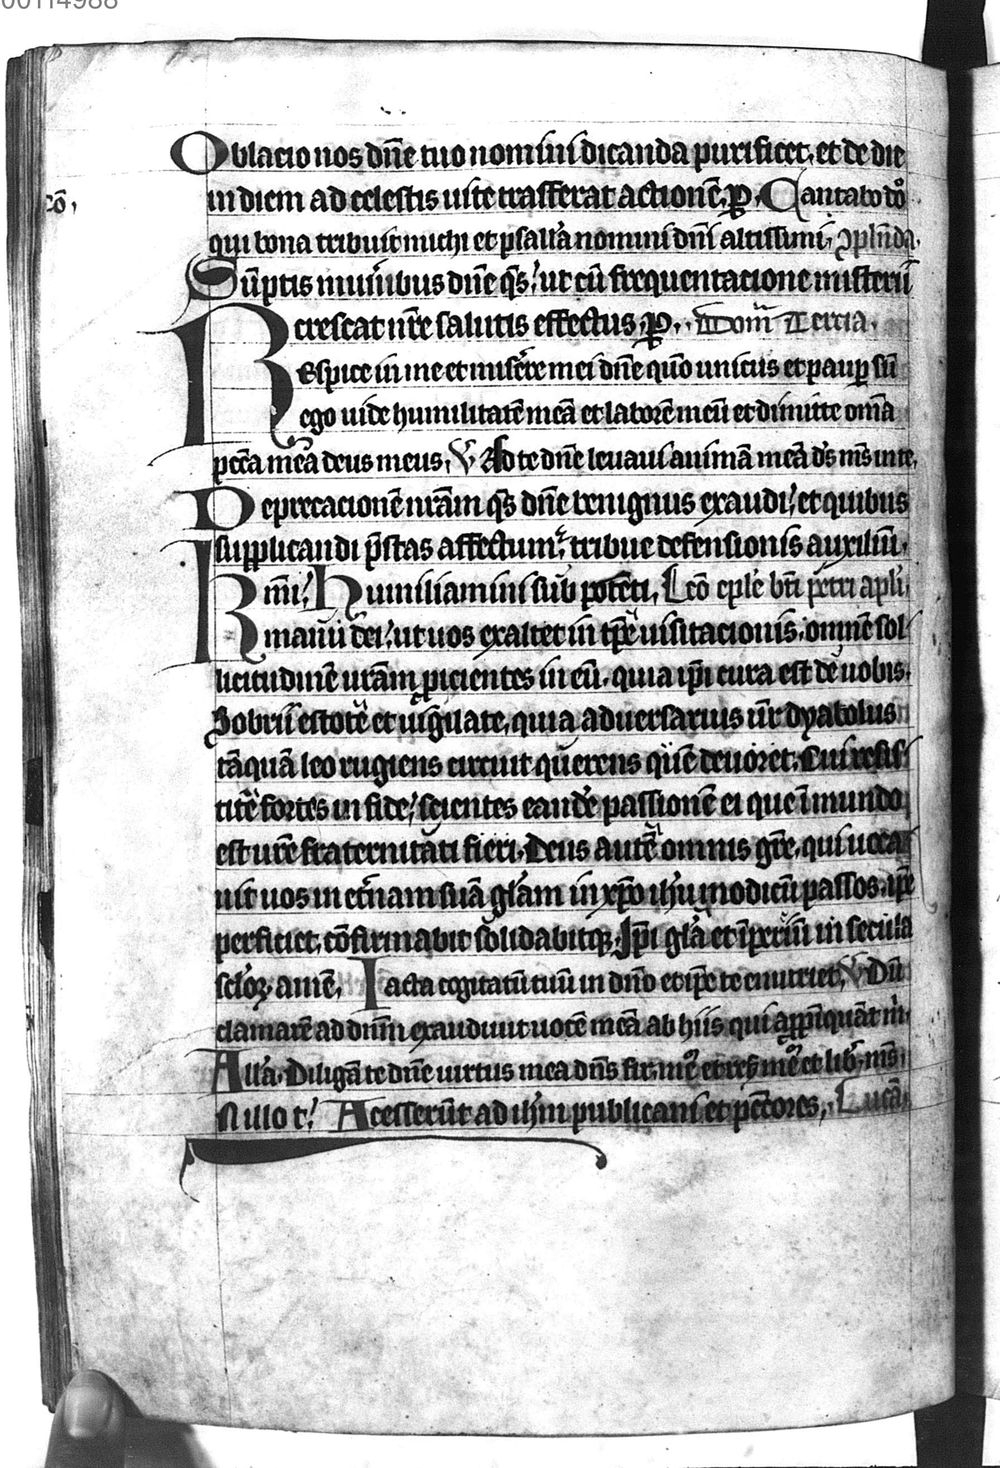 00114988
Oblacio nos dn̄e tuo nomini dicanda purificet, et de die
in diem ad celestis uite trāsferat actionē. ꝑ. Cantabo dn̄o
cō,
qui bona tribuit michi et psallā nomini dn̄i altissimi, ꝯplen̄da.
Sūptis munibus dn̄e qs̄, ut cū frequentacione misterii
crescat nr̄e salutis effectus. ꝑ. Dom̄ Tercia.
Respice in me et miserēre mei dn̄e qm̄o unicus et paup̄ sū
ego uide humilitatē meā et laborē meū et dimitte om̄ia
pctā mea deus meus, V Ad te dn̄e leuaui animā meā ds̄ ms̄ in te,
Deprecacionē nr̄am qs̄ dn̄e benignus exaudi, et quibus
supplicandi p̄stas affectum, tribue defensionis auxiliū.
Rm̄i, Humiliamini sub potēti, Lcō epl̄e bt̄i petri apl̄i,
manu dei, ut uos exaltet in tp̄e uisitacionis, omnē sol
licitudinē ur̄am ꝓicientes in eū, quia ip̄i cura est de uobis.
Sobrii estote et uigilate, quia aduersarius ur̄ dyabolus
tāquā leo rugiens circuit querens quē deuoret, Cui resis
tite fortes in fide, scientes eandē passionē ei que ī mundo
est ur̄e fraternitati fieri. Deus autē omnis gr̄e, qui uoca
uit uos in et̄nam suā gl̄am in xp̄o ih̄u modicū passos, ip̄e
perficiet, cōfirmabit solidabitqꝫ. Ip̄i gl̄a et īperiū in secula
scl̄oꝝ amē. Iacta cogitatū tuū in dn̄o et ip̄e te enutriet, V Dū
clamarē ad dn̄m exaudiuit uocē meā ab hiis qui appīquāt m̄i.
All̄a. Diligā te dn̄e uirtus mea dn̄s fir. me et ref. me et lib. ms̄.
In illo t. Acesserūt ad ih̄m publicani et pctōres, Lucā,